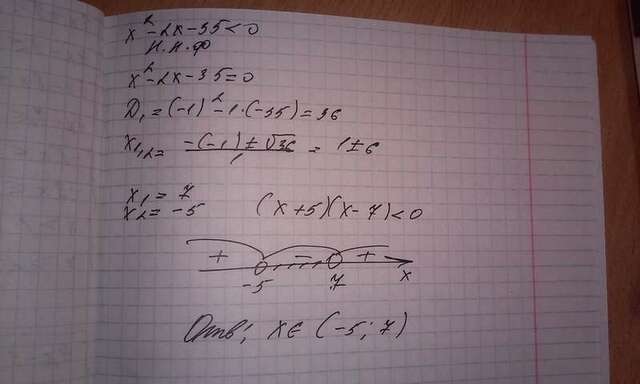 x² - 2x - 35 < 0
н.н.ф
x² - 2x - 35 = 0
D₁ = (-1)² - 1·(-35) = 36
x₁,₂ = (-(-1) ± √36)/1 = 1 ± 6
x₁ = 7
x₂ = -5 (x+5)(x-7) < 0
+ - +
-5 7 x
Отв: x ∈ (-5; 7)